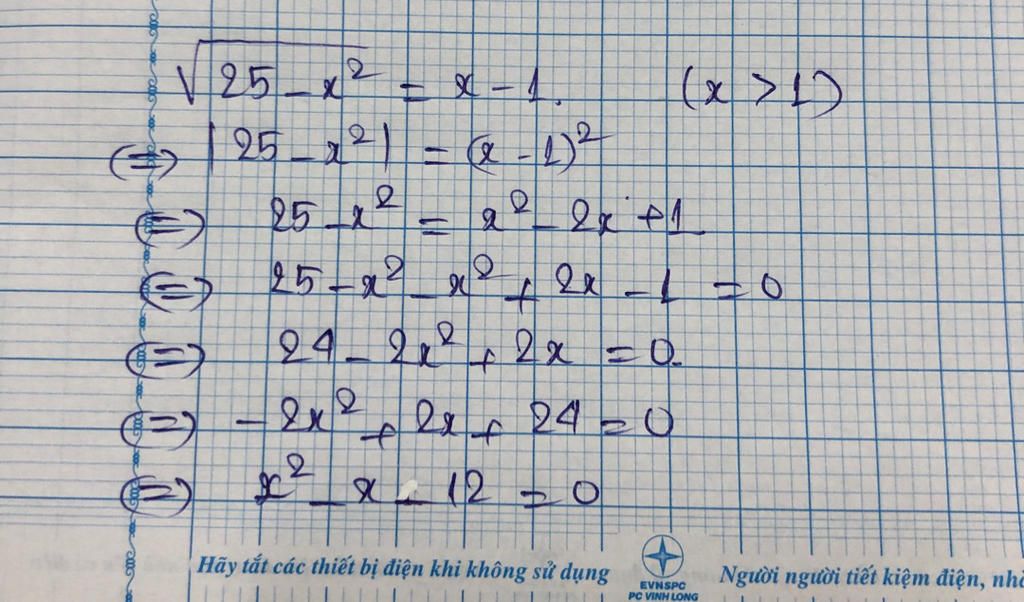 √25 - x² = x - 1. (x > 1)
(=) |25 - x²| = (x - 1)²
(=) 25 - x² = x² - 2x + 1
(=) 25 - x² - x² + 2x - 1 = 0
(=) 24 - 2x² + 2x = 0.
(=) - 2x² + 2x + 24 = 0
(=) x² - x - 12 = 0
Hãy tắt các thiết bị điện khi không sử dụng
EVNSPC
PC VINH LONG
Người người tiết kiệm điện, nhà